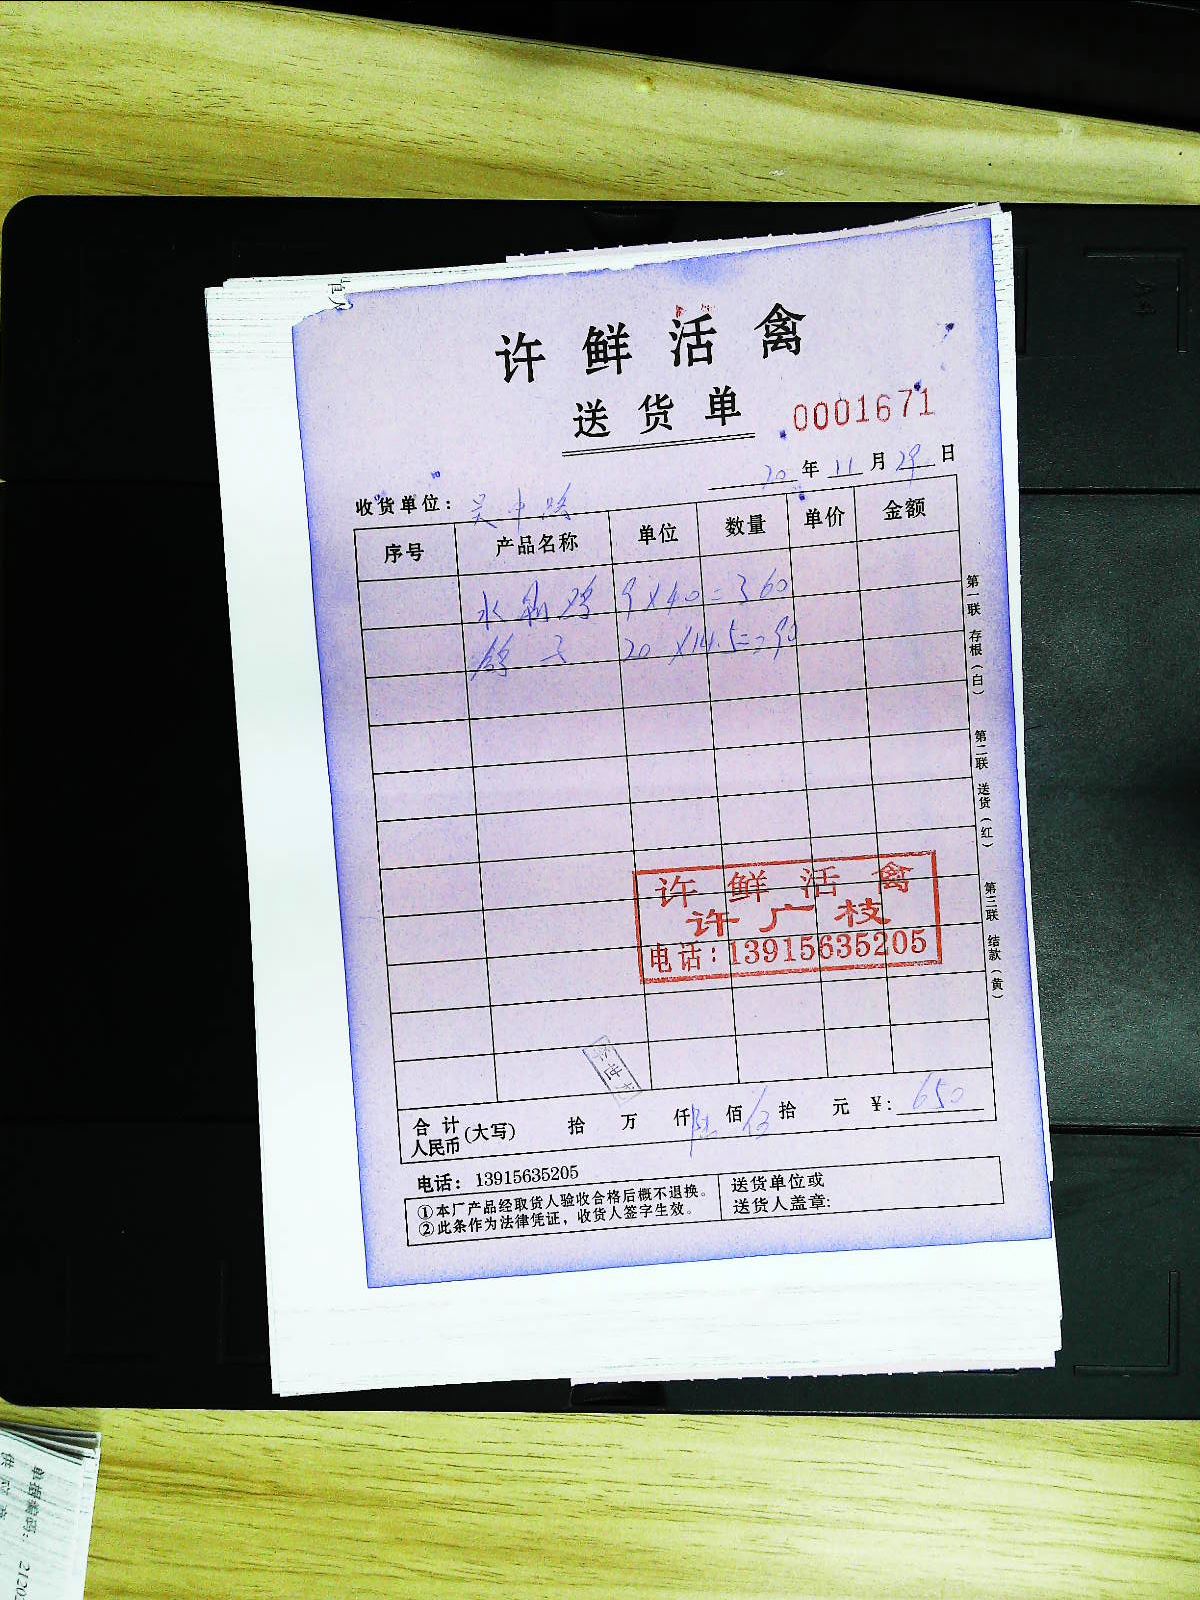 许鲜活禽
送货单 0001671
20年11月29日
收货单位：吴中路
序号 产品名称 单位 数量 单价 金额
水制鸡 9×40=360
鸽子 20×14.5=290
第一联 存根（白）
第二联 送货（红）
第三联 结款（黄）
许鲜活禽
许广枝
电话：13915635205
合计人民币(大写) 拾 万 仟陆佰伍拾 元 ¥：650
电话：13915635205
①本厂产品经取货人验收合格后概不退换。
②此条作为法律凭证，收货人签字生效。
送货单位或
送货人盖章:
单据编码：